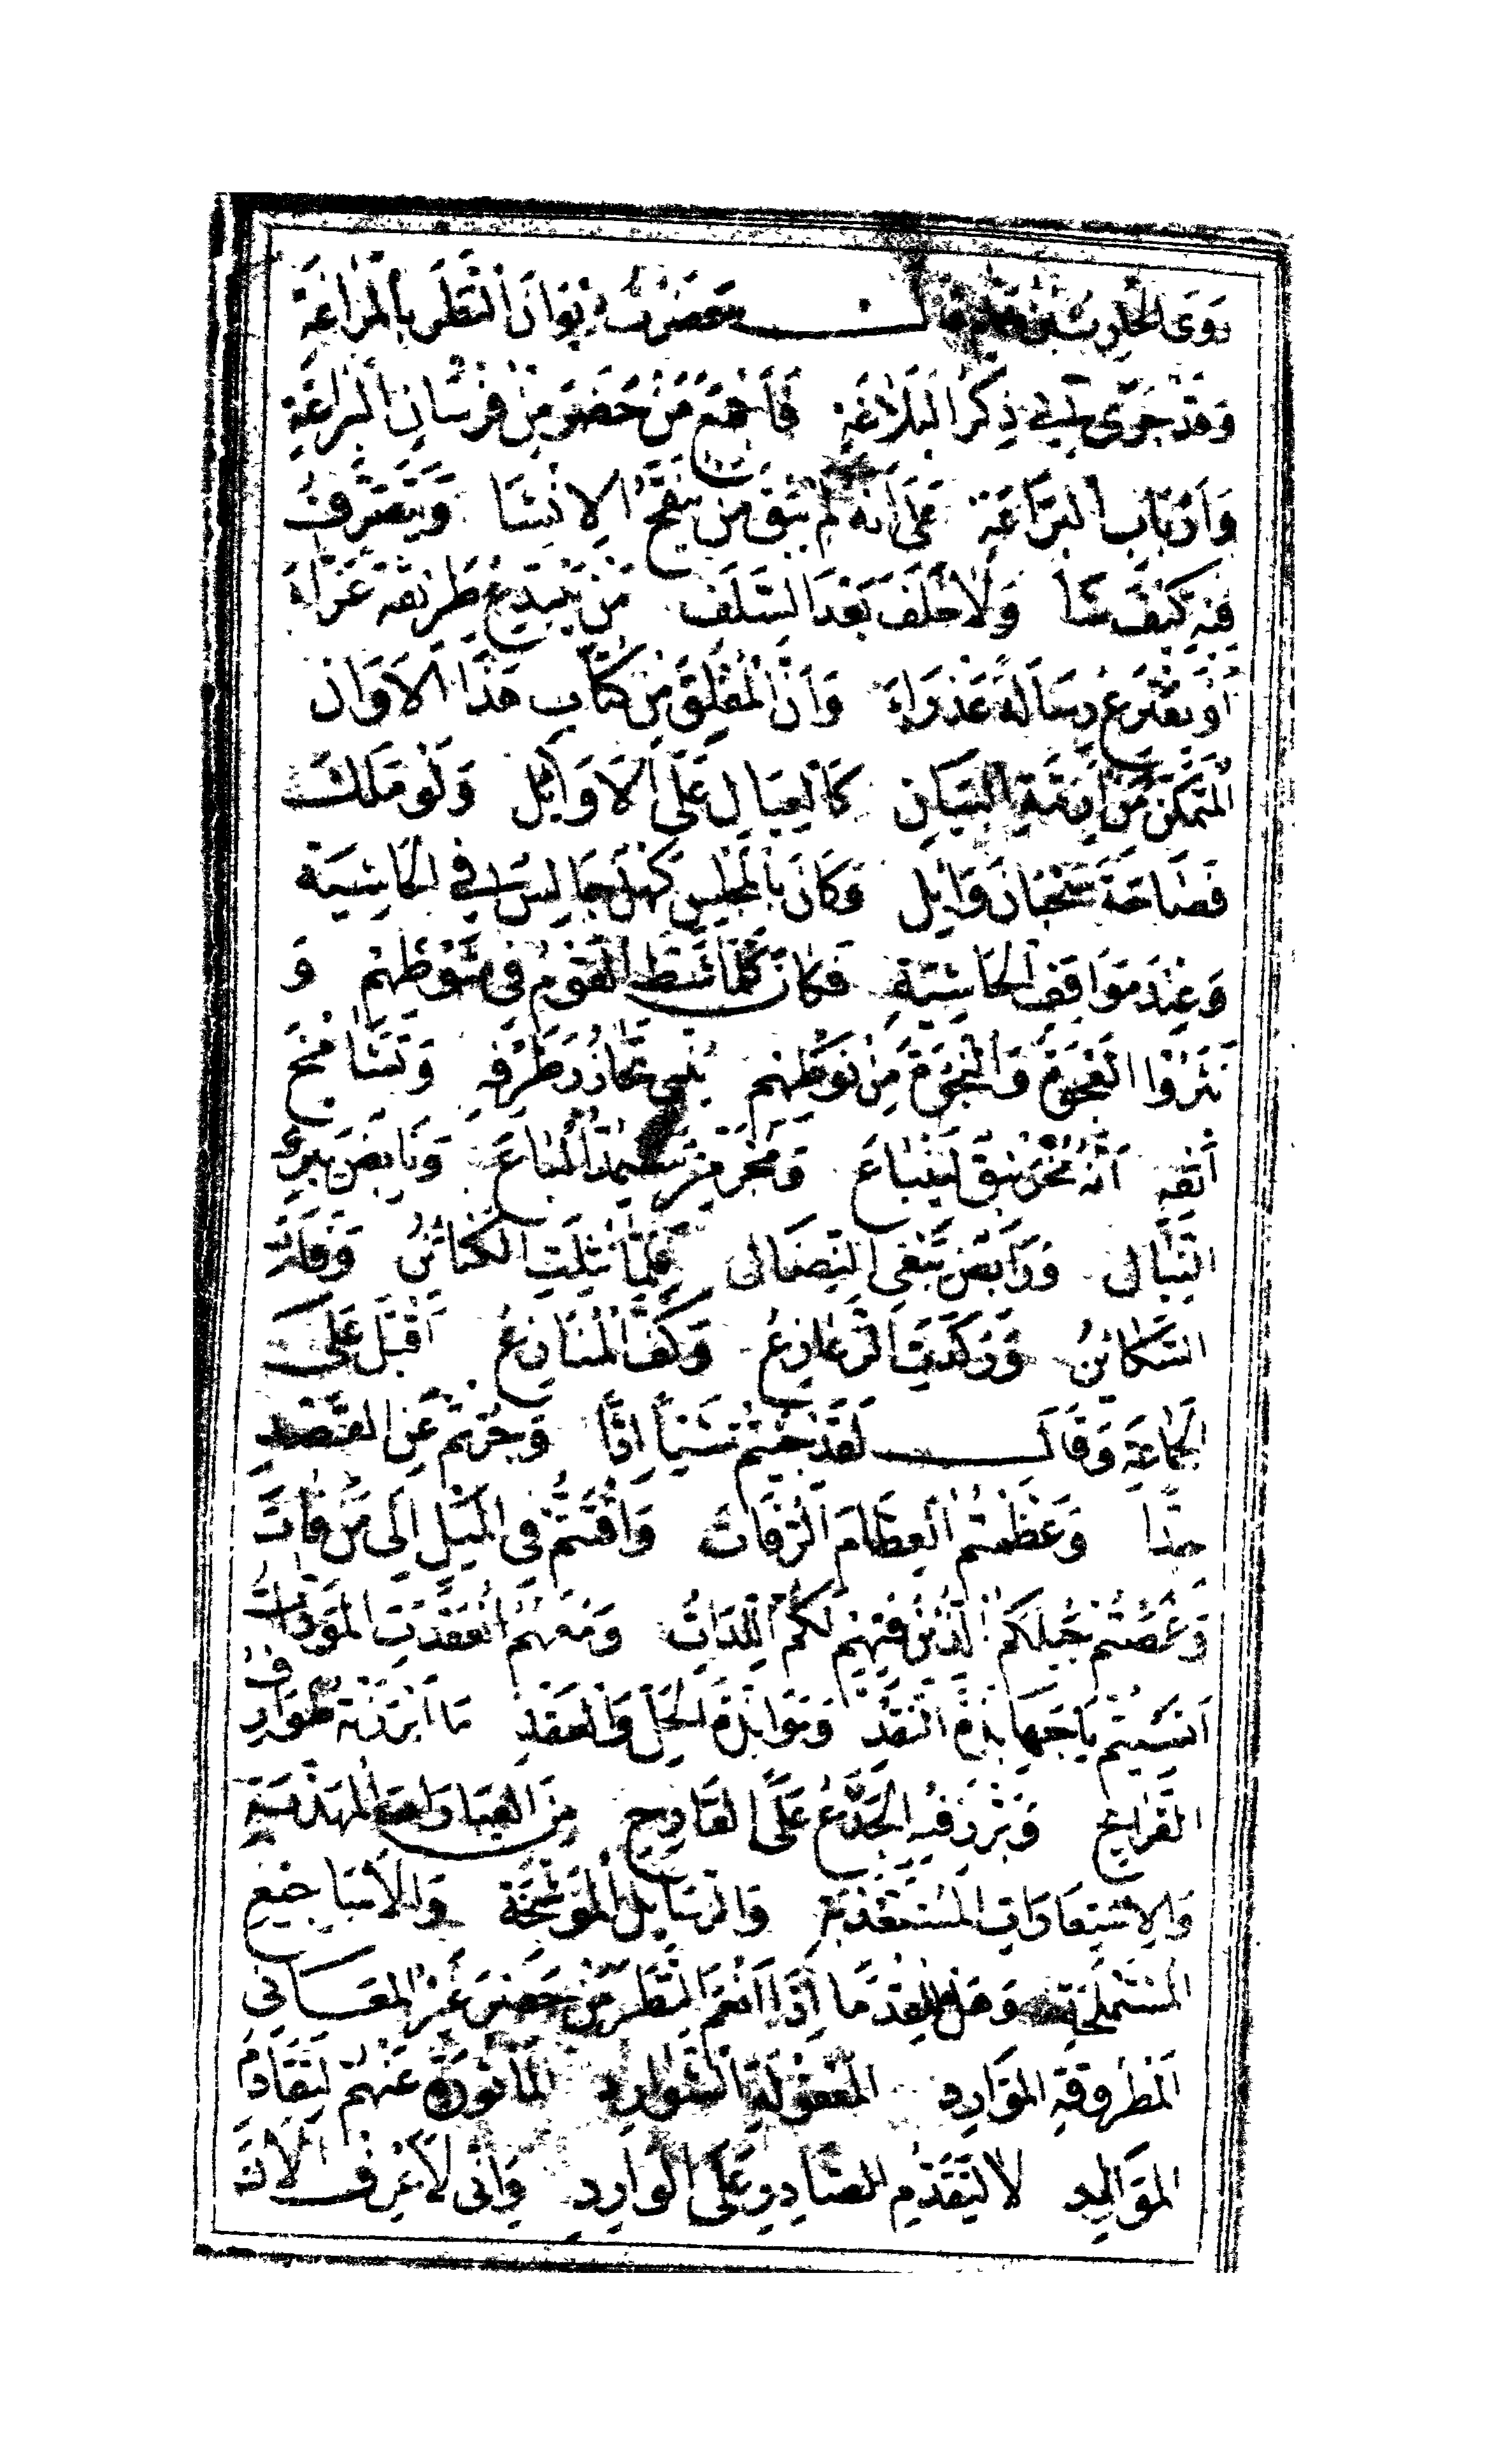 رَوَى الحَارِثُ بْنُ هَمَّامٍ قَالَ حَضَرْتُ دِيوَانَ النَّظَرِ بِالْمَرَاغَةِ
وَقَدْ جَرَى بِهِ ذِكْرُ البَلَاغَةِ فَأَجْمَعَ مَنْ حَضَرَ مِنْ فُرْسَانِ البَرَاعَةِ
وَأَرْبَابِ البَرَاعَةِ عَلَى أَنَّهُ لَمْ يَبْقَ مَنْ يُنَقِّحُ الإِنْشَا وَيَتَصَرَّفُ
فِيهِ كَيْفَ شَا وَلَا خَلَفَ بَعْدَ السَّلَفِ مَنْ يَبْتَدِعُ طَرِيقَةً غَرَّاءَ
أَوْ يَفْتَرِعُ رِسَالَةً عَذْرَاءَ وَأَنَّ الْمُفْلِقَ مِنْ كُتَّابِ هَذَا الأَوَانِ
الْمُتَمَكِّنَ مِنْ أَزِمَّةِ البَيَانِ كَالْعِيَالِ عَلَى الأَوَائِلِ وَلَوْ مَلَكَ
فَصَاحَةَ سَحْبَانَ وَائِلٍ وَكَانَ بِالْمَجْلِسِ كَهْلٌ جَالِسٌ فِي الحَاشِيَةِ
وَعِنْدَ مَوَاقِفِ الحَاشِيَةِ فَكَانَ كُلَّمَا شَطَّ القَوْمُ فِي شَوْطِهِمْ وَ
نَثَرُوا العَجْوَةَ وَالنَّجْوَةَ مِنْ نَوْطِهِمْ يُنْبِي تَخَازُرُ طَرْفِهِ وَتَشَامُخُ
أَنْفِهِ أَنَّهُ مُخْرَنْبِقٌ لِيَنْبَاعَ وَمُجْرَمِّزٌ سَيَمُدُّ الْبَاعَ وَنَابِضٌ يَبْرِي
النِّبَالَ وَرَابِضٌ يَبْغِي النِّضَالَ فَلَمَّا نُثِلَتِ الكَنَائِنُ وَفَاءَتِ
السَّكَائِنُ وَرَكَدَتِ الزَّعَازِعُ وَكَفَّ الْمُنَازِعُ أَقْبَلَ عَلَى
الجَمَاعَةِ وَقَالَ لَقَدْ جِئْتُمْ شَيْئًا إِدًّا وَجُرْتُمْ عَنِ القَصْدِ
جِدًّا وَعَظَّمْتُمُ العِظَامَ الرُّفَاتَ وَافْتَتُّمْ فِي الْمَيْلِ إِلَى مَنْ فَاتَ
وَغَمَصْتُمْ جِيلَكُمُ الَّذِينَ فِيهِمْ لَكُمُ اللِّدَاتُ وَمَعَهُمُ انْعَقَدَتِ الْمَوَدَّاتُ
أَنَسِيتُمْ يَا جَهَابِذَةَ النَّقْدِ وَمَوَابِذَةَ الحَلِّ وَالعَقْدِ مَا أَبْرَزَتْهُ طَوَارِفُ
القَرَائِحِ وَبَرَّزَ فِيهِ الجَذَعُ عَلَى القَارِحِ مِنَ العِبَارَاتِ الْمُهَذَّبَةِ
وَالِاسْتِعَارَاتِ الْمُسْتَعْذَبَةِ وَالرَّسَائِلِ الْمُوَشَّحَةِ وَالأَسَاجِيعِ
الْمُسْتَمْلَحَةِ وَهَلْ لِلْقُدَمَا إِذَا أَنْعَمَ النَّظَرَ مَنْ حَضَرَ غَيْرُ الْمَعَانِي
الْمَطْرُوقَةِ الْمَوَارِدِ الْمَعْقُولَةِ الشَّوَارِدِ الْمَأْثُورَةِ عَنْهُمْ لِتَقَادُمِ
الْمَوَالِدِ لَا لِتَقَدُّمِ الصَّادِرِ عَلَى الوَارِدِ وَإِنِّي لَأَعْرِفُ الآنَ